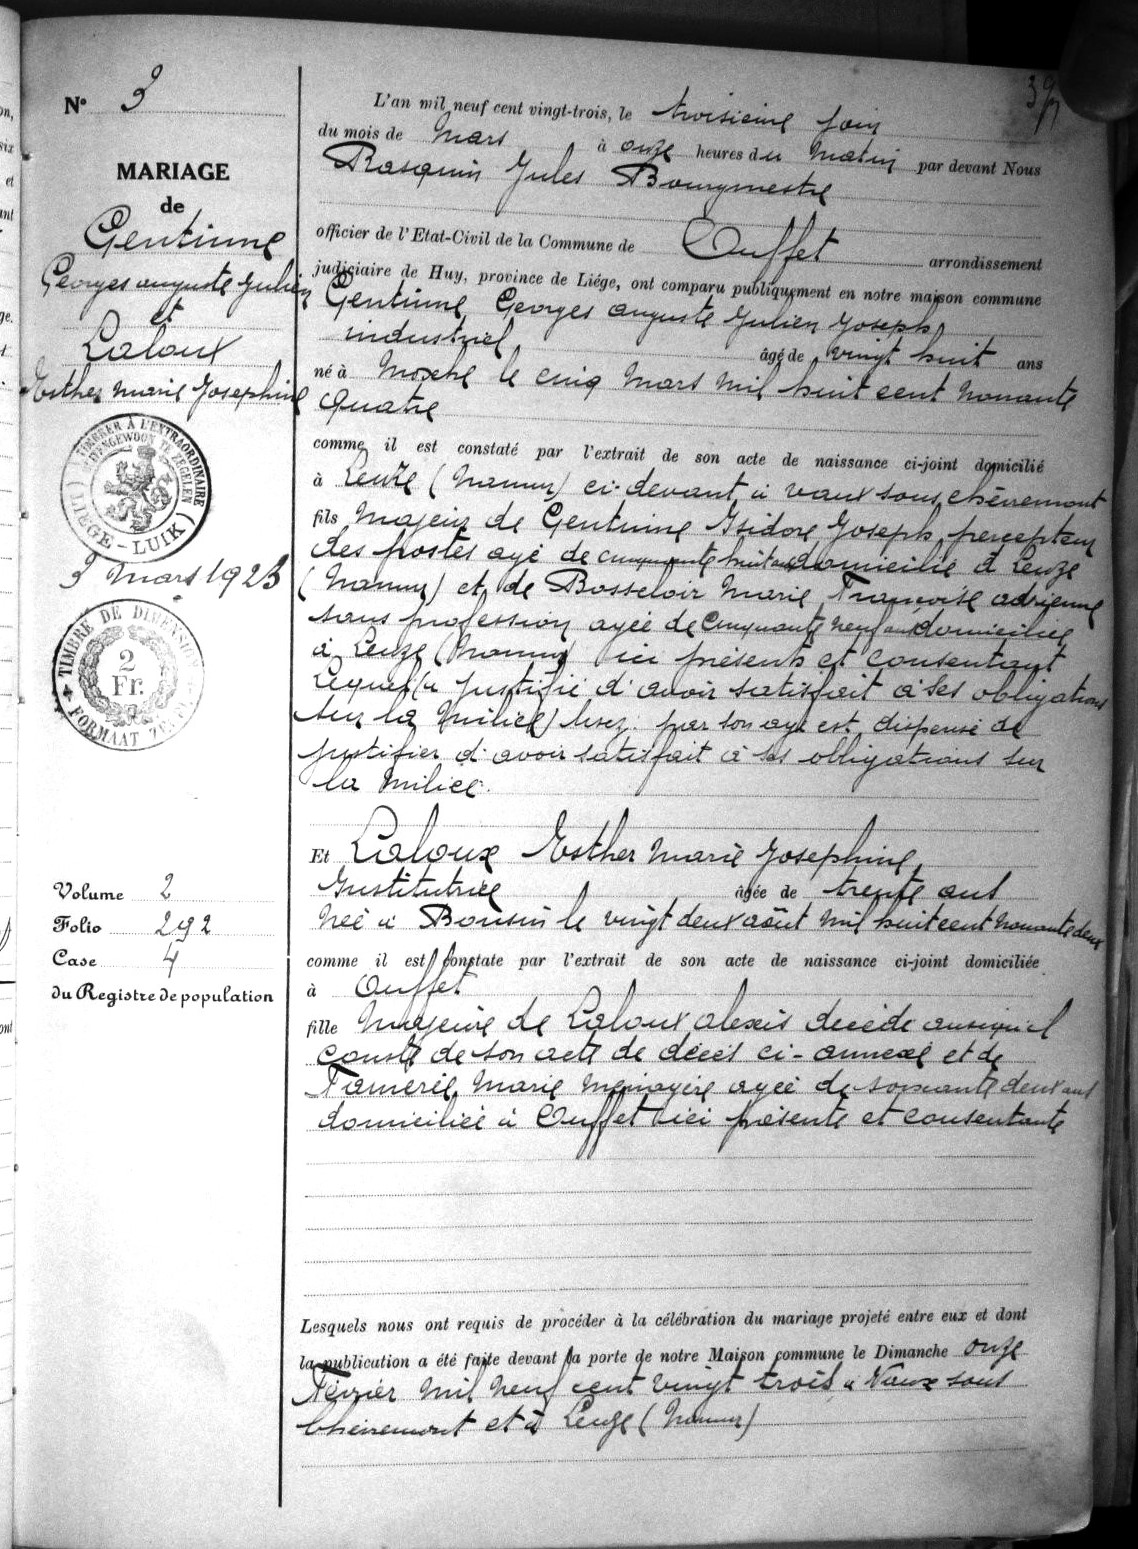 39
N° 3
MARIAGE
de
Gentinne
Georges auguste Julien
et
Laloux
Esther Marie Josephine
TIMBRER À L'EXTRAORDINAIRE
BUITENGEWOON TE ZEGELEN
(LIÈGE-LUIK)
3 Mars 1923
TIMBRE DE DIMENSION
2
Fr.
FORMAAT ZEGEL
Volume 2
Folio 292
Case 4
du Registre de population
L'an mil neuf cent vingt-trois, le troisieme jour
du mois de Mars à onze heures du Matin par devant Nous
Rasquin Jules Bourgmestre
officier de l'Etat-Civil de la Commune de Ouffet arrondissement
judiciaire de Huy, province de Liége, ont comparu publiquement en notre maison commune
Gentinne Georges auguste Julien Joseph,
industriel âgé de vingt huit ans
né à Moxhe le cinq Mars mil huit cent nonante
quatre
comme il est constaté par l'extrait de son acte de naissance ci-joint domicilié
à Leuze (Namur) ci-devant à vaux sous chèvremont
fils Majeur de Gentinne Isidore Joseph, percepteur
des postes agé de cinquante huit ans domicilié à Leuze
(Namur) et de Bosseloir Marie Françoise adrienne
sans profession agée de cinquante neuf ans domiciliée
à Leuze (Namur) ici présents et consentant
Lequel (a justifié d'avoir satisfait à ses obligations
sur la milice) lisez: par son age est dispensé de
justifier d'avoir satisfait à ses obligations sur
la milice.
Et Laloux Esther Marie Josephine,
Institutrice âgée de trente ans
née à Bonsin le vingt deux août mil huit cent nonante deux
comme il est constaté par l'extrait de son acte de naissance ci-joint domiciliée
à Ouffet
fille Majeure de Laloux alexis décédé ainsi qu'il
conste de son acte de décès ci-annexé et de
Famerée Marie ménagère agée de soixante deux ans
domiciliée à Ouffet ici présente et consentante
Lesquels nous ont requis de procéder à la célébration du mariage projeté entre eux et dont
la publication a été faite devant la porte de notre Maison commune le Dimanche onze
Février mil neuf cent vingt trois à Vaux sous
Chèvremont et à Leuze (Namur)